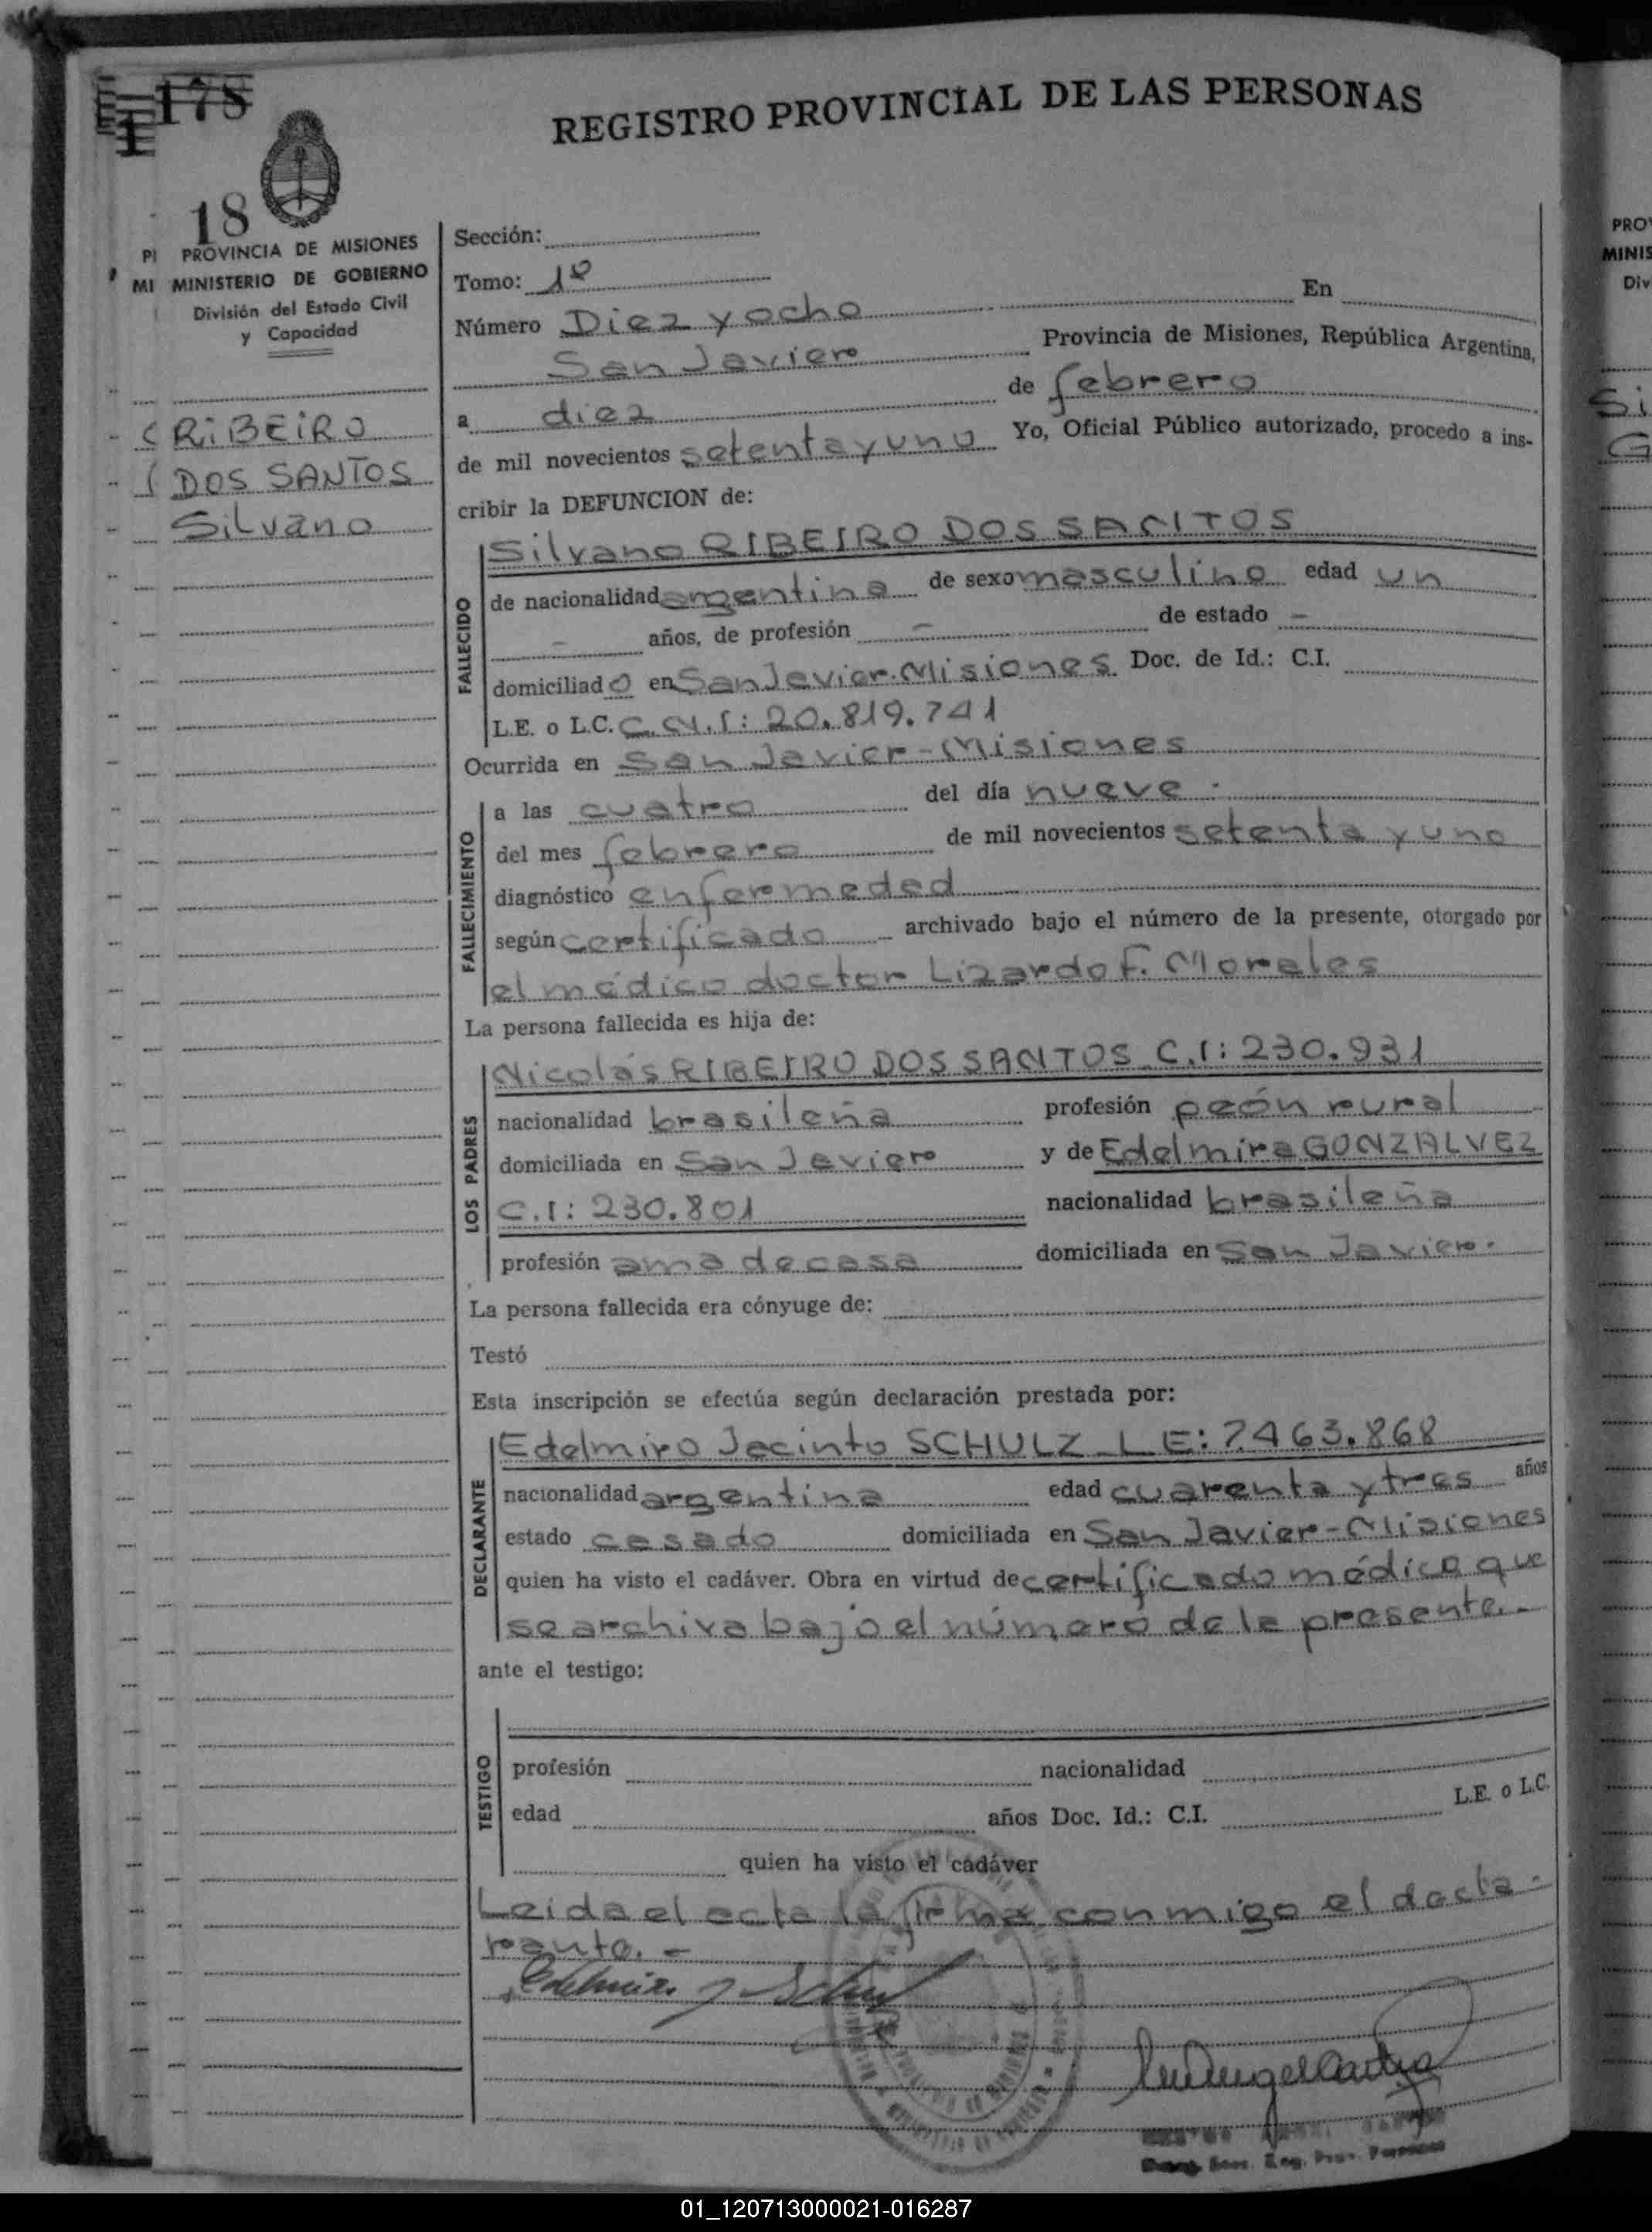 178
1
REGISTRO PROVINCIAL DE LAS PERSONAS
18
PI PROVINCIA DE MISIONES
MI MINISTERIO DE GOBIERNO
División del Estado Civil
y Capacidad
RIBEIRO
DOS SANTOS
Silvano
Sección:
Tomo: 1º
Número Diez y ocho En
San Javier Provincia de Misiones, República Argentina,
a diez de febrero
de mil novecientos setenta y uno Yo, Oficial Público autorizado, procedo a ins-
cribir la DEFUNCION de:
FALLECIDO
Silvano RIBEIRO DOS SANTOS
de nacionalidad argentina de sexo masculino edad un
- años, de profesión - de estado -
domiciliado en San Javier. Misiones Doc. de Id.: C.I.
L.E. o L.C. C.N.I: 20.819.741
Ocurrida en San Javier - Misiones
FALLECIMIENTO
a las cuatro del día nueve -
del mes febrero de mil novecientos setenta y uno
diagnóstico enfermedad
según certificado archivado bajo el número de la presente, otorgado por
el médico doctor Lizardo F. Morales
La persona fallecida es hija de:
LOS PADRES
Nicolás RIBEIRO DOS SANTOS C.I: 230.931
nacionalidad brasileña profesión peón rural
domiciliada en San Javier y de Edelmira GONZALVEZ
C.I: 230.801 nacionalidad brasileña
profesión ama de casa domiciliada en San Javier.
La persona fallecida era cónyuge de:
Testó
Esta inscripción se efectúa según declaración prestada por:
DECLARANTE
Edelmiro Jacinto SCHULZ L E: 7.463.868
nacionalidad argentina edad cuarenta y tres años
estado casado domiciliada en San Javier - Misiones
quien ha visto el cadáver. Obra en virtud de certificado médico que
se archiva bajo el número de la presente.-
ante el testigo:
TESTIGO
profesión nacionalidad
edad años Doc. Id.: C.I. L.E. o L.C.
quien ha visto el cadáver
Leida el acta la firma conmigo el decla-
rante. -
Edelmiro J Schulz
PRO
MINIS
Div
Si
G
01_120713000021-016287